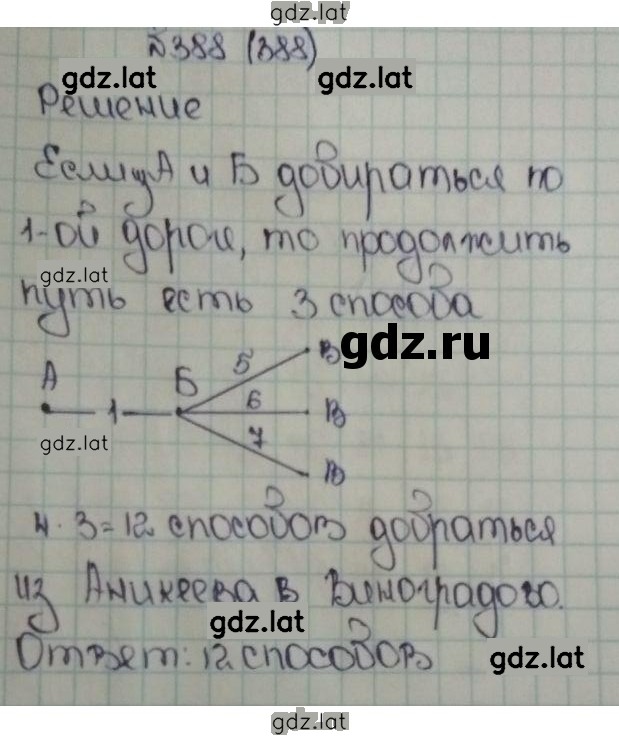 gdz.lat
№388 (388)
gdz.lat gdz.lat
Решение
Если из А и Б добираться по
1-ой дороге, то продолжить
gdz.lat
путь есть 3 способа
gdz.ru
А Б 5 В
1 6 В
gdz.lat
7 В
4 · 3 = 12 способов добраться
из Аникеева в Виноградово.
gdz.lat
Ответ: 12 способов
gdz.lat
gdz.lat